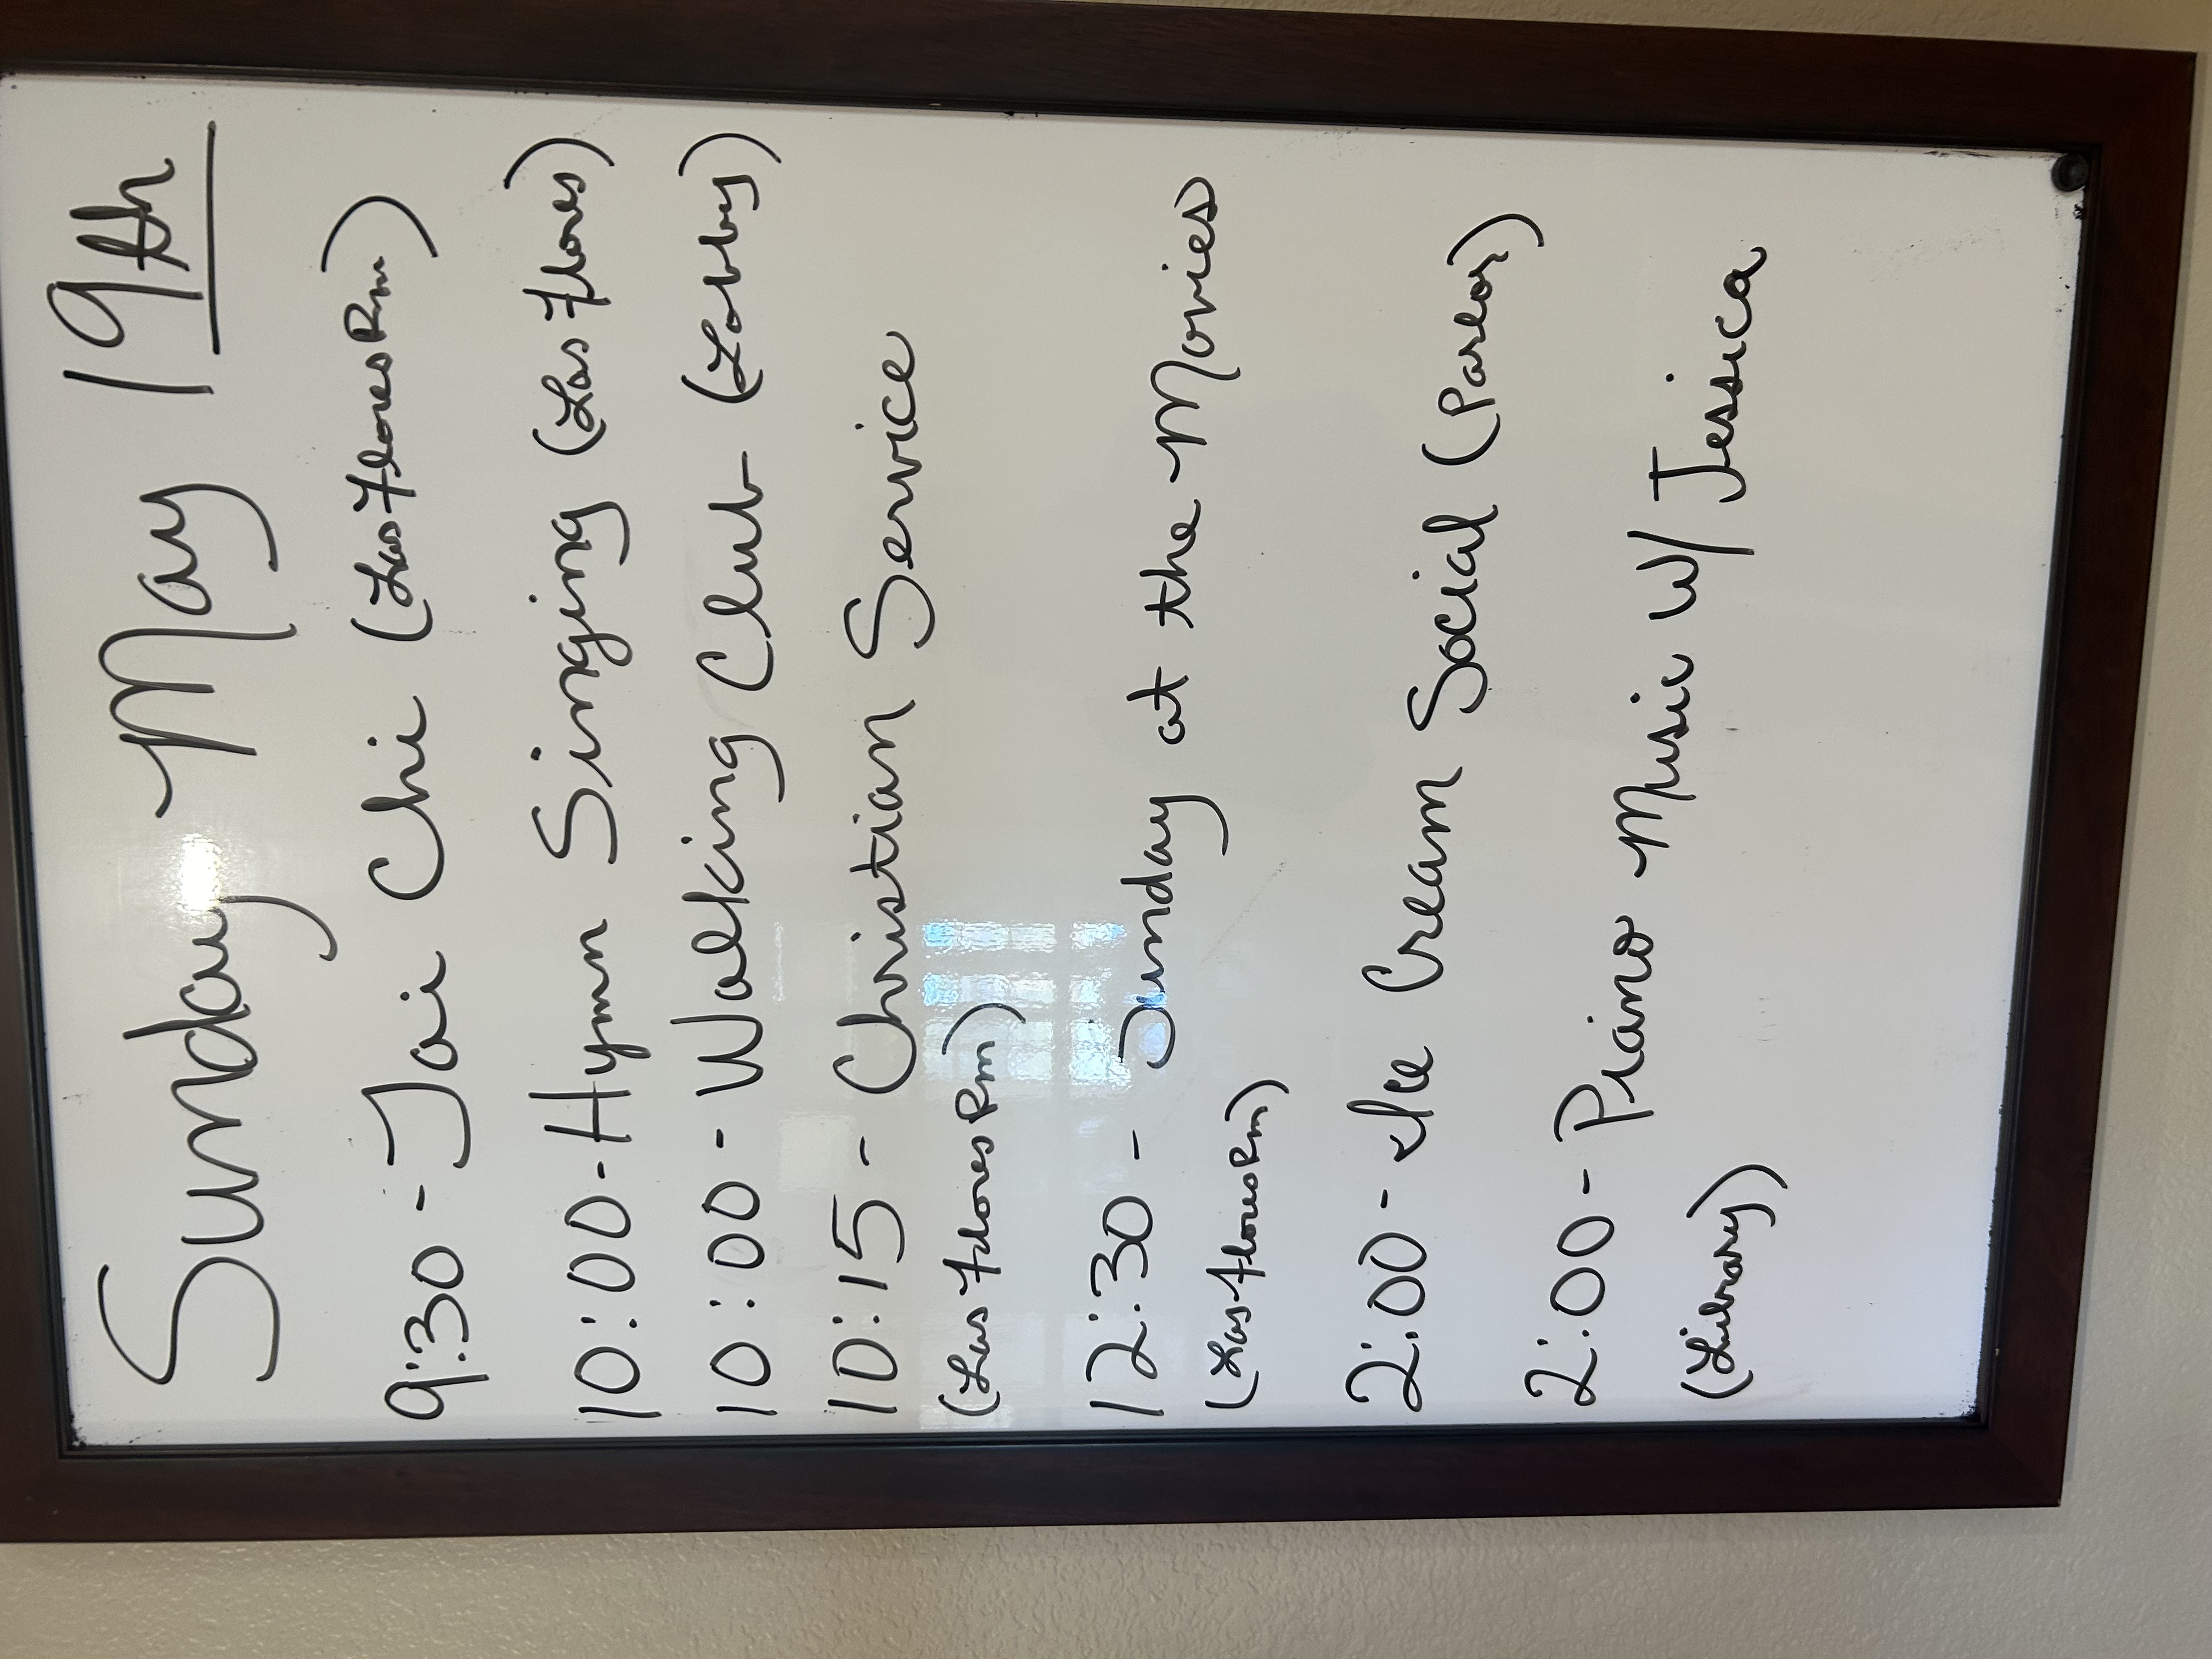 Sunday May 19th
9:30 - Tai Chi (Las Flores Rm)
10:00 - Hymn Singing (Las Flores)
10:00 - Walking Club (Lobby)
10:15 - Christian Service
(Las Flores Rm)
12:30 - Sunday at the Movies
(Las Flores Rm)
2:00 - Ice Cream Social (Parlor)
2:00 - Piano Music W/ Jessica
(Library)